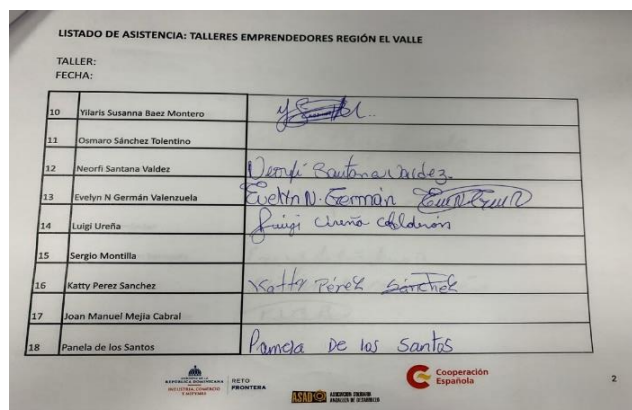 LISTADO DE ASISTENCIA: TALLERES EMPRENDEDORES REGIÓN EL VALLE
TALLER:
FECHA:
10 Yilaris Susanna Baez Montero
11 Osmaro Sánchez Tolentino
12 Neorfi Santana Valdez Neorfi Santana Valdez.
13 Evelyn N Germán Valenzuela Evelyn N. Germán
14 Luigi Ureña Luigi Ureña Calderón
15 Sergio Montilla
16 Katty Perez Sanchez Katty Pérez Sánchez
17 Joan Manuel Mejia Cabral
18 Panela de los Santos Pamela De los Santos
REPÚBLICA DOMINICANA
INDUSTRIA, COMERCIO
Y MIPYMES
RETO
FRONTERA
ASAD
Cooperación
Española
2